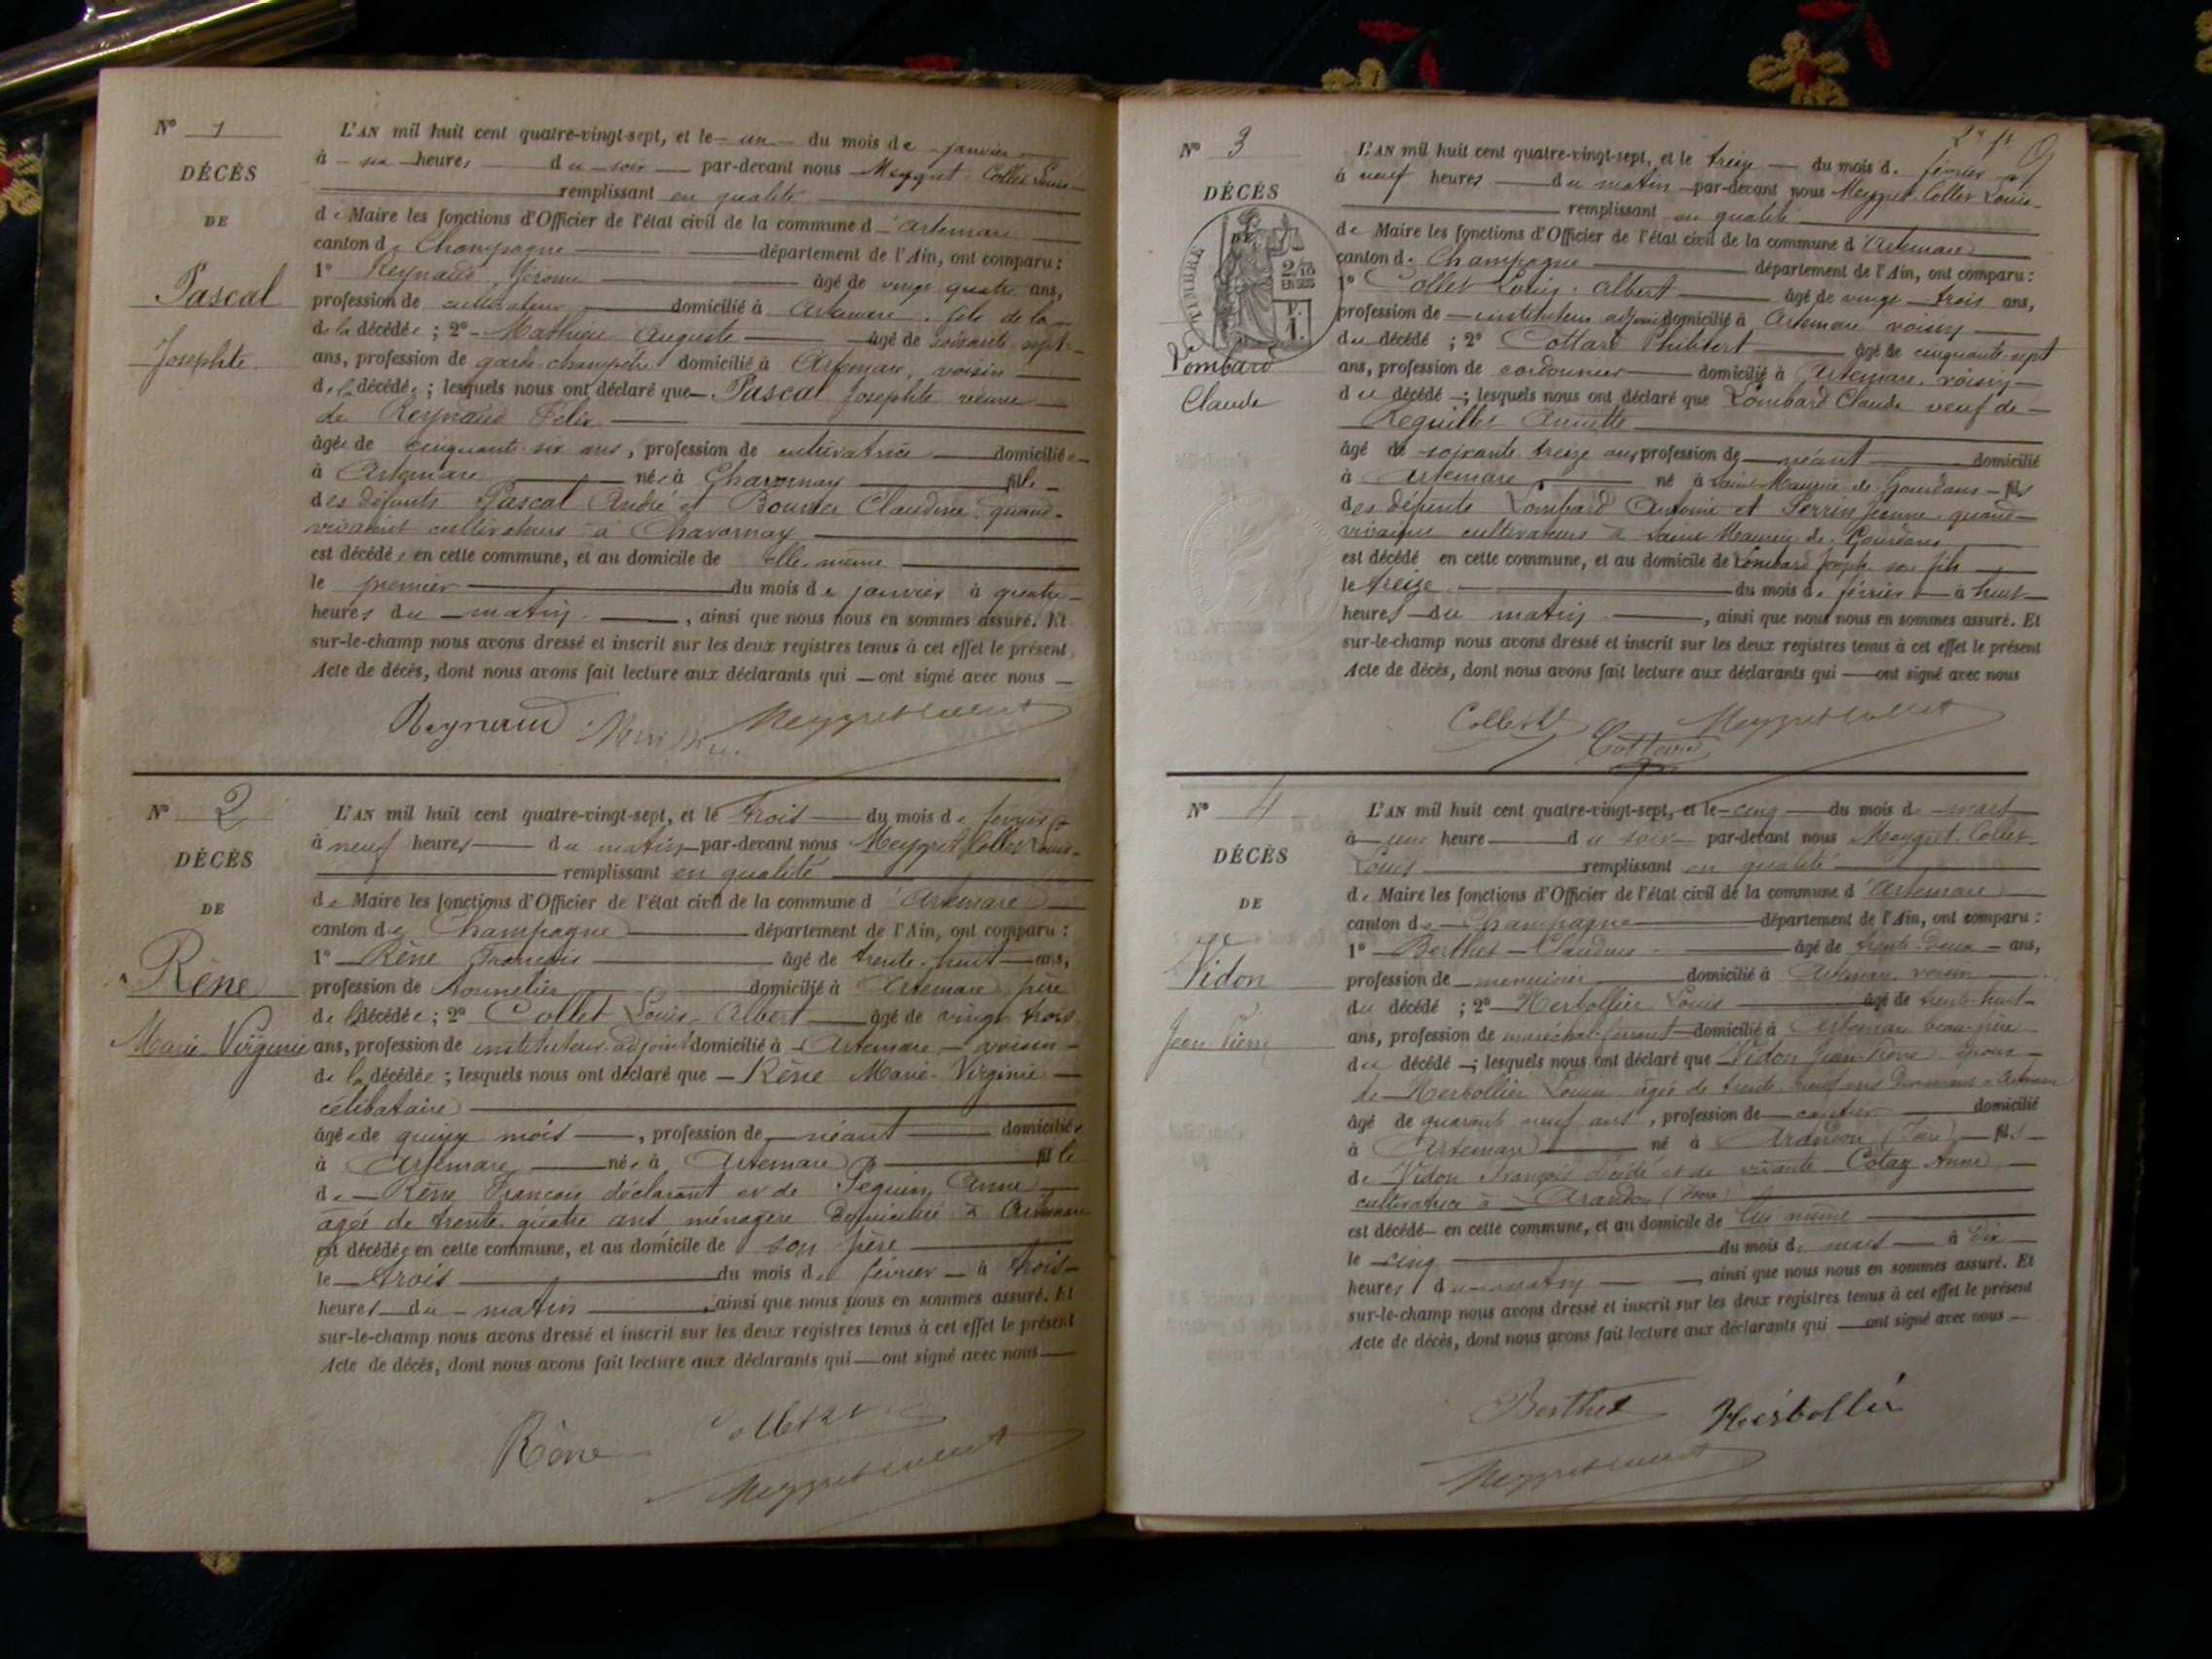 N° 1
DÉCÈS
DE
Pascal
Josephte
L'AN mil huit cent quatre-vingt-sept, et le un du mois de janvier
à six heures du soir par-devant nous Meygret Collet Louis
remplissant en qualité
de Maire les fonctions d'Officier de l'état civil de la commune d'Artemare
canton de Champagne département de l'Ain, ont comparu :
1° Reynaud, Jérome âgé de vingt quatre ans,
profession de cultivateur domicilié à Artemare, fils de la
de la décédée ; 2° Mathieu Auguste âgé de soixante sept
ans, profession de garde-champêtre domicilié à Artemare, voisin
de la décédée ; lesquels nous ont déclaré que Pascal Josephte veuve
de Reynaud Félix
âgée de cinquante-six ans, profession de cultivatrice domiciliée
à Artemare née à Chavornay fille
des défunts Pascal André et Bouvier Claudine, quand
vivaient cultivateurs à Chavornay
est décédée en cette commune, et au domicile de elle même
le premier du mois de janvier à quatre
heures du matin, ainsi que nous nous en sommes assuré. Et
sur-le-champ nous avons dressé et inscrit sur les deux registres tenus à cet effet le présent
Acte de décès, dont nous avons fait lecture aux déclarants qui ont signé avec nous
Reynaud Meygret Collet
N° 2
DÉCÈS
DE
Rêne
Marie Virginie
L'AN mil huit cent quatre-vingt-sept, et le trois du mois de février
à neuf heures du matin par-devant nous Meygret Collet Louis
remplissant en qualité
de Maire les fonctions d'Officier de l'état civil de la commune d'Artemare
canton de Champagne département de l'Ain, ont comparu :
1° Rêne François âgé de trente-huit ans,
profession de tonnelier domicilié à Artemare, père
de la décédée ; 2° Collet Louis Albert âgé de vingt trois
ans, profession de instituteur adjoint domicilié à Artemare voisin
de la décédée ; lesquels nous ont déclaré que Rêne Marie Virginie
célibataire
âgée de quinze mois, profession de néant domiciliée
à Artemare née à Artemare fille
de Rêne François déclarant et de Seguin Anne
agée de trente quatre ans ménagère domiciliée à Artemare
est décédée en cette commune, et au domicile de son père
le trois du mois de février à trois
heures du matin ainsi que nous nous en sommes assuré. Et
sur-le-champ nous avons dressé et inscrit sur les deux registres tenus à cet effet le présent
Acte de décès, dont nous avons fait lecture aux déclarants qui ont signé avec nous
Rêne Collet
Meygret Collet
N° 3
DÉCÈS
DE
TIMBRE
2/10
EN SUS
Lombard
Claude
L'AN mil huit cent quatre-vingt-sept, et le treize du mois de février
à neuf heures du matin par-devant nous Meygret Collet Louis
remplissant en qualité
de Maire les fonctions d'Officier de l'état civil de la commune d'Artemare
canton de Champagne département de l'Ain, ont comparu :
1° Collet Louis Albert âgé de vingt trois ans,
profession de instituteur adjoint domicilié à Artemare voisin
du décédé ; 2° Cottard Philibert âgé de cinquante-sept
ans, profession de cordonnier domicilié à Artemare, voisin
du décédé ; lesquels nous ont déclaré que Lombard Claude veuf de
Annette
âgé de soixante treize ans, profession de néant domicilié
à Artemare né à Saint Maurice de Gourdans fils
des défunts Lombard Antoine et Perrin Jeanne quand
vivaient cultivateurs à Saint Maurice de Gourdans
est décédé en cette commune, et au domicile de Lombard Joseph son fils
le treize du mois de février à huit
heures du matin, ainsi que nous nous en sommes assuré. Et
sur-le-champ nous avons dressé et inscrit sur les deux registres tenus à cet effet le présent
Acte de décès, dont nous avons fait lecture aux déclarants qui ont signé avec nous
Collet Meygret Collet
Cottard
N° 4
DÉCÈS
DE
Vidon
Jean Pierre
L'AN mil huit cent quatre-vingt-sept, et le cinq du mois de mars
à une heure du soir par-devant nous Meygret Collet
Louis remplissant en qualité
de Maire les fonctions d'Officier de l'état civil de la commune d'Artemare
canton de Champagne département de l'Ain, ont comparu :
1° Berthet Claudius âgé de trente-deux ans,
profession de menuisier domicilié à Artemare voisin
du décédé ; 2° Herbollier Louis âgé de trente-huit
ans, profession de maréchal-ferrant domicilié à Artemare beau-frère
du décédé ; lesquels nous ont déclaré que Vidon Jean Pierre époux
de Herbollier Louise agée de trente neuf ans demeurant à Artemare
âgé de quarante neuf ans, profession de domicilié
à Artemare né à Arandon (Isère) fils
de Vidon François décédé et de vivante Cotaz Anne
cultivatrice à Arandon (Isère)
est décédé en cette commune, et au domicile de lui même
le cinq du mois de mars à dix
heures du matin, ainsi que nous nous en sommes assuré. Et
sur-le-champ nous avons dressé et inscrit sur les deux registres tenus à cet effet le présent
Acte de décès, dont nous avons fait lecture aux déclarants qui ont signé avec nous
Berthet Herbollier
Meygret Collet